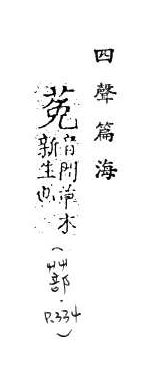 四聲篇海
莬
音問草木
新生也
(艸部.P.334)